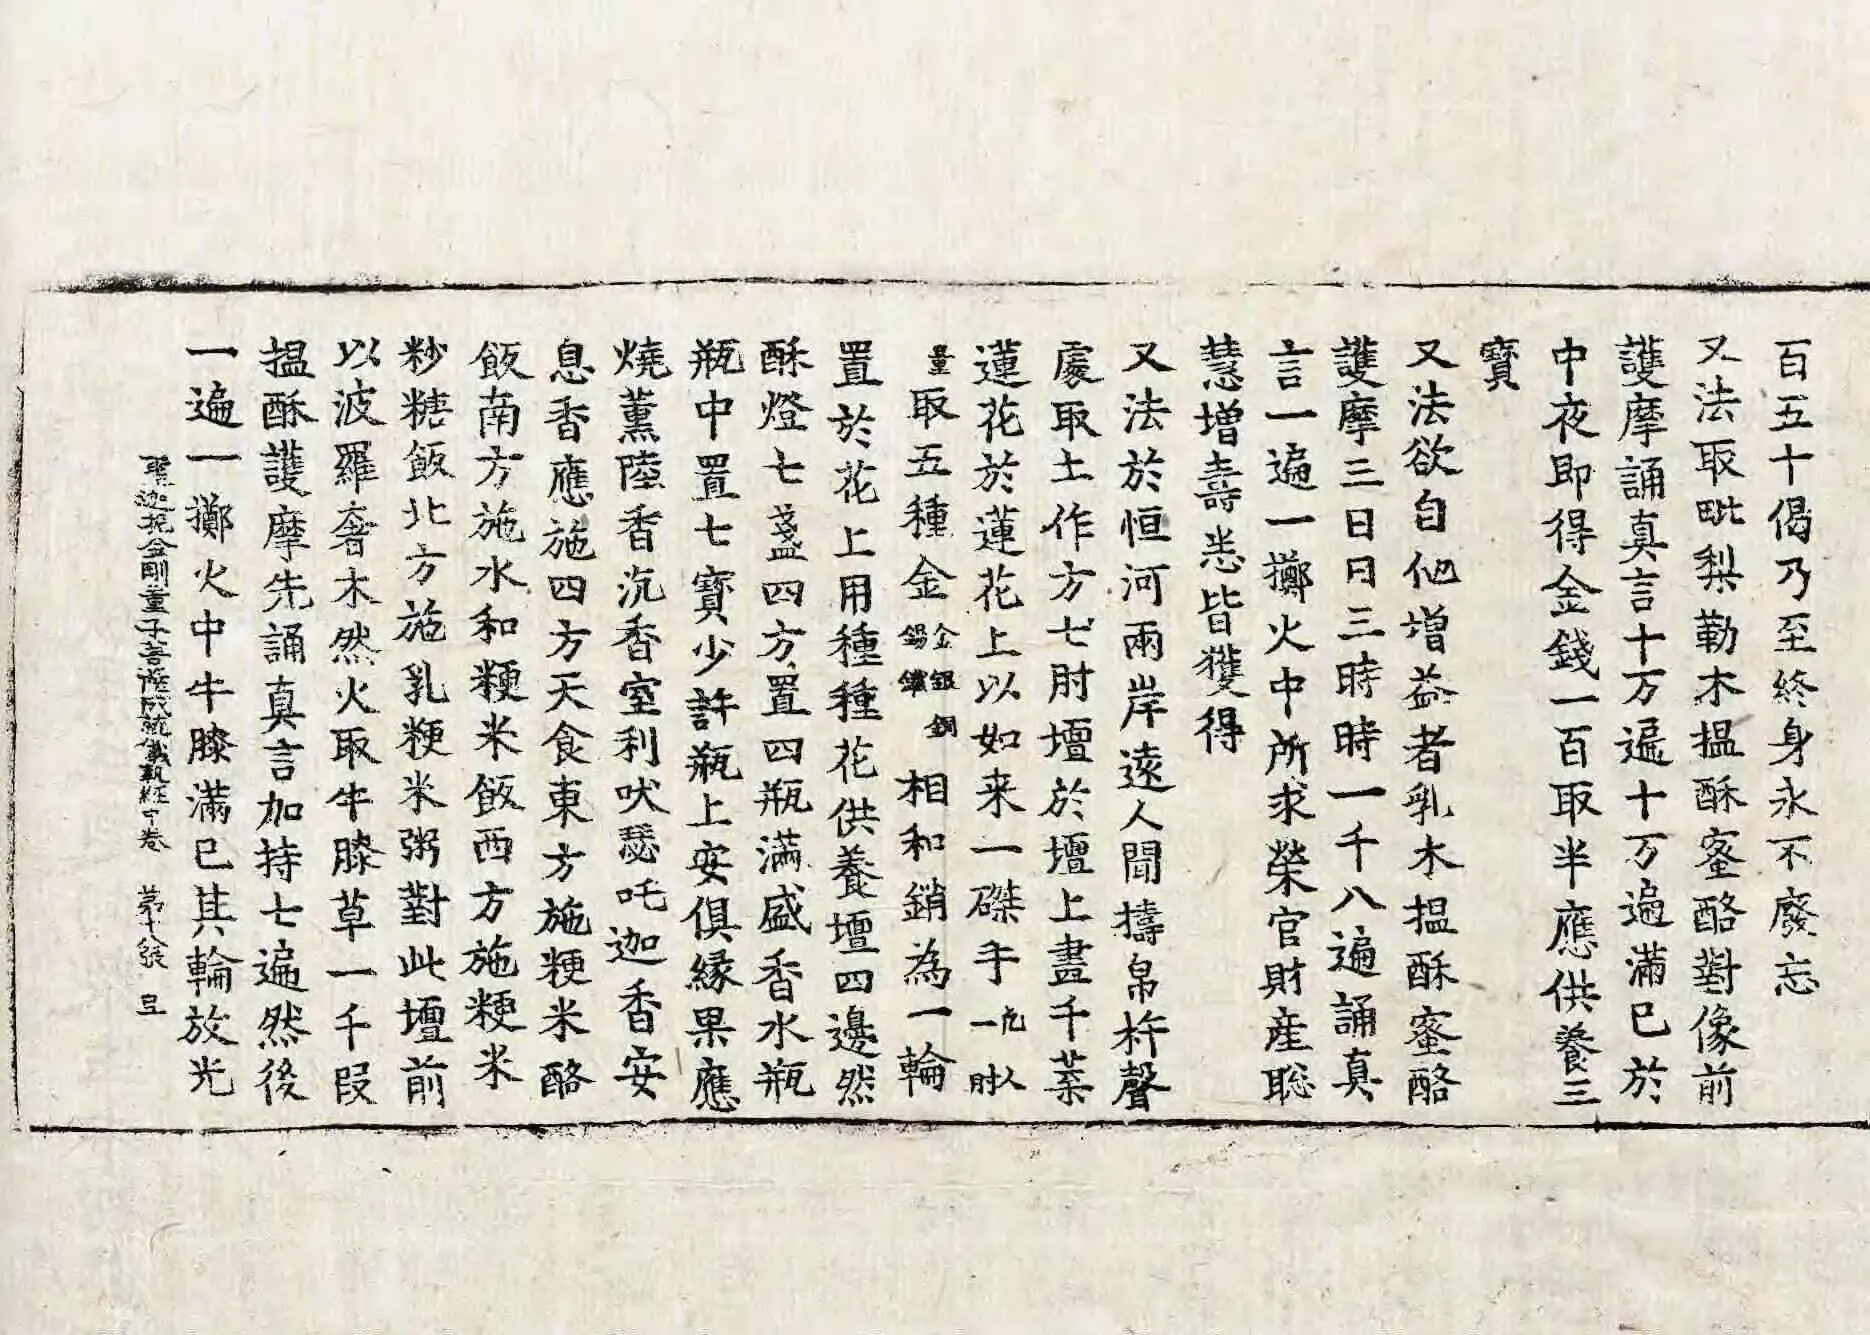 百五十偈乃至終身永不廢忘
又法取毗梨勒木搵酥蜜酪對像前
護摩誦真言十万遍十万遍滿已於
中夜即得金錢一百取半應供養三
寶
又法欲自他增益者乳木搵酥蜜酪
護摩三日日三時時一千八遍誦真
言一遍一擲火中所求榮官財産聡
慧增壽悉皆獲得
又法於恒河兩岸遠人間擣帛杵聲
處取土作方七肘壇於壇上畫千葉
蓮花於蓮花上以如来一磔手凡人一肘
量取五種金金銀銅錫鑞相和銷為一輪
置於花上用種種花供養壇四邊然
酥燈七盞四方置四瓶滿盛香水瓶
瓶中置七寶少許瓶上安俱緣果應
燒薰陸香沉香室利吠瑟吒迦香安
息香應施四方天食東方施粳米酪
飯南方施水和粳米飯西方施粳米
粆糖飯北方施乳粳米粥對此壇前
以波羅奢木然火取牛膝草一千段
搵酥護摩先誦真言加持七遍然後
一遍一擲火中牛膝滿已其輪放光
聖迦抳金剛童子菩薩成就儀軌経中卷 苐十八張